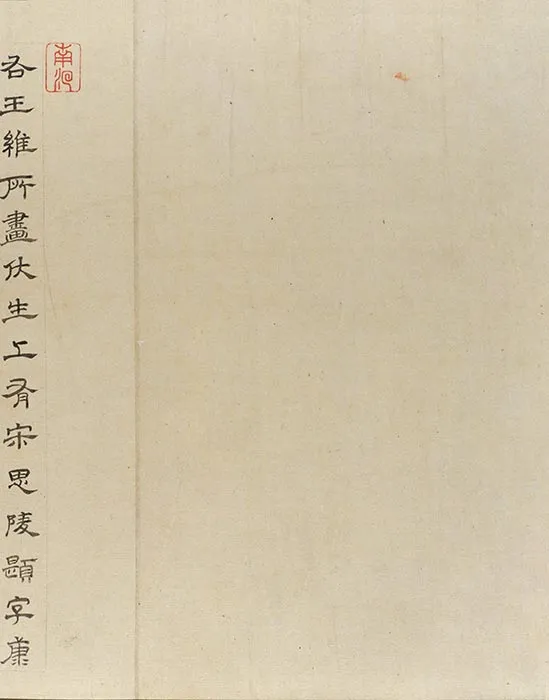 南
右王維所畫伏生上有宋思陵題字康